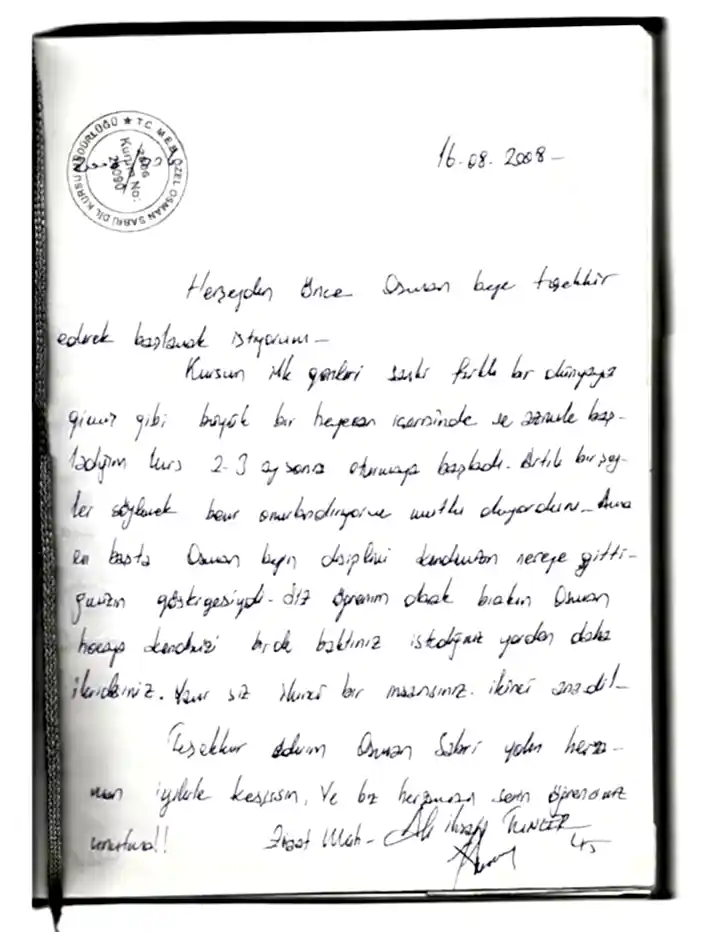 T.C. M.E.B. ÖZEL OSMAN SABRİ DİL KURSU MÜDÜRLÜĞÜ ★
Kurum No:
16.08.2008-
Herşeyden Önce Osman beye teşekkür
ederek başlamak istiyorum-
Kursun ilk günleri sanki farklı bir dünyaya
girmiş gibi büyük bir heyecan içerisinde ve azimle baş-
ladığım kurs 2-3 ay sonra oturmaya başladı. Artık birşey-
ler söylemek beni onurlandırıyor ve mutlu oluyordum- Ama
en başta Osman beyin disiplini nereye gitti-
ğimizin göstergesiydi- Siz öğrenim olarak bırakın Osman
hocaya kendinizi birde baktınız istediğiniz yerden daha
ileridesiniz. Yani siz ikinci bir insansınız. ikinci anadil-
Teşekkür ederim Osman Sabri yolun herza-
man iyilikle kesişsin. Ve biz herzaman senin öğrenciniz
unutma!! Ziraat Müh- Ali ihsan TUNCER